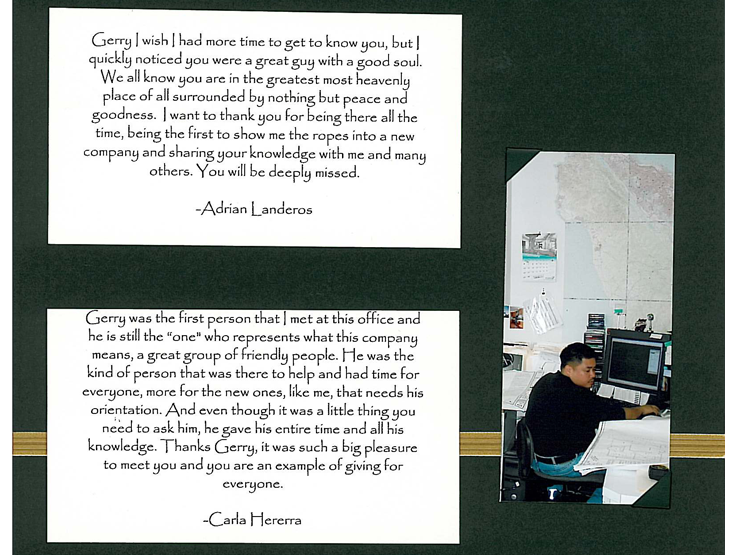 Gerry I wish I had more time to get to know you, but I
quickly noticed you were a great guy with a good soul.
We all know you are in the greatest most heavenly
place of all surrounded by nothing but peace and
goodness. I want to thank you for being there all the
time, being the first to show me the ropes into a new
company and sharing your knowledge with me and many
others. You will be deeply missed.
-Adrian Landeros
Gerry was the first person that I met at this office and
he is still the "one" who represents what this company
means, a great group of friendly people. He was the
kind of person that was there to help and had time for
everyone, more for the new ones, like me, that needs his
orientation. And even though it was a little thing you
need to ask him, he gave his entire time and all his
knowledge. Thanks Gerry, it was such a big pleasure
to meet you and you are an example of giving for
everyone.
-Carla Hererra